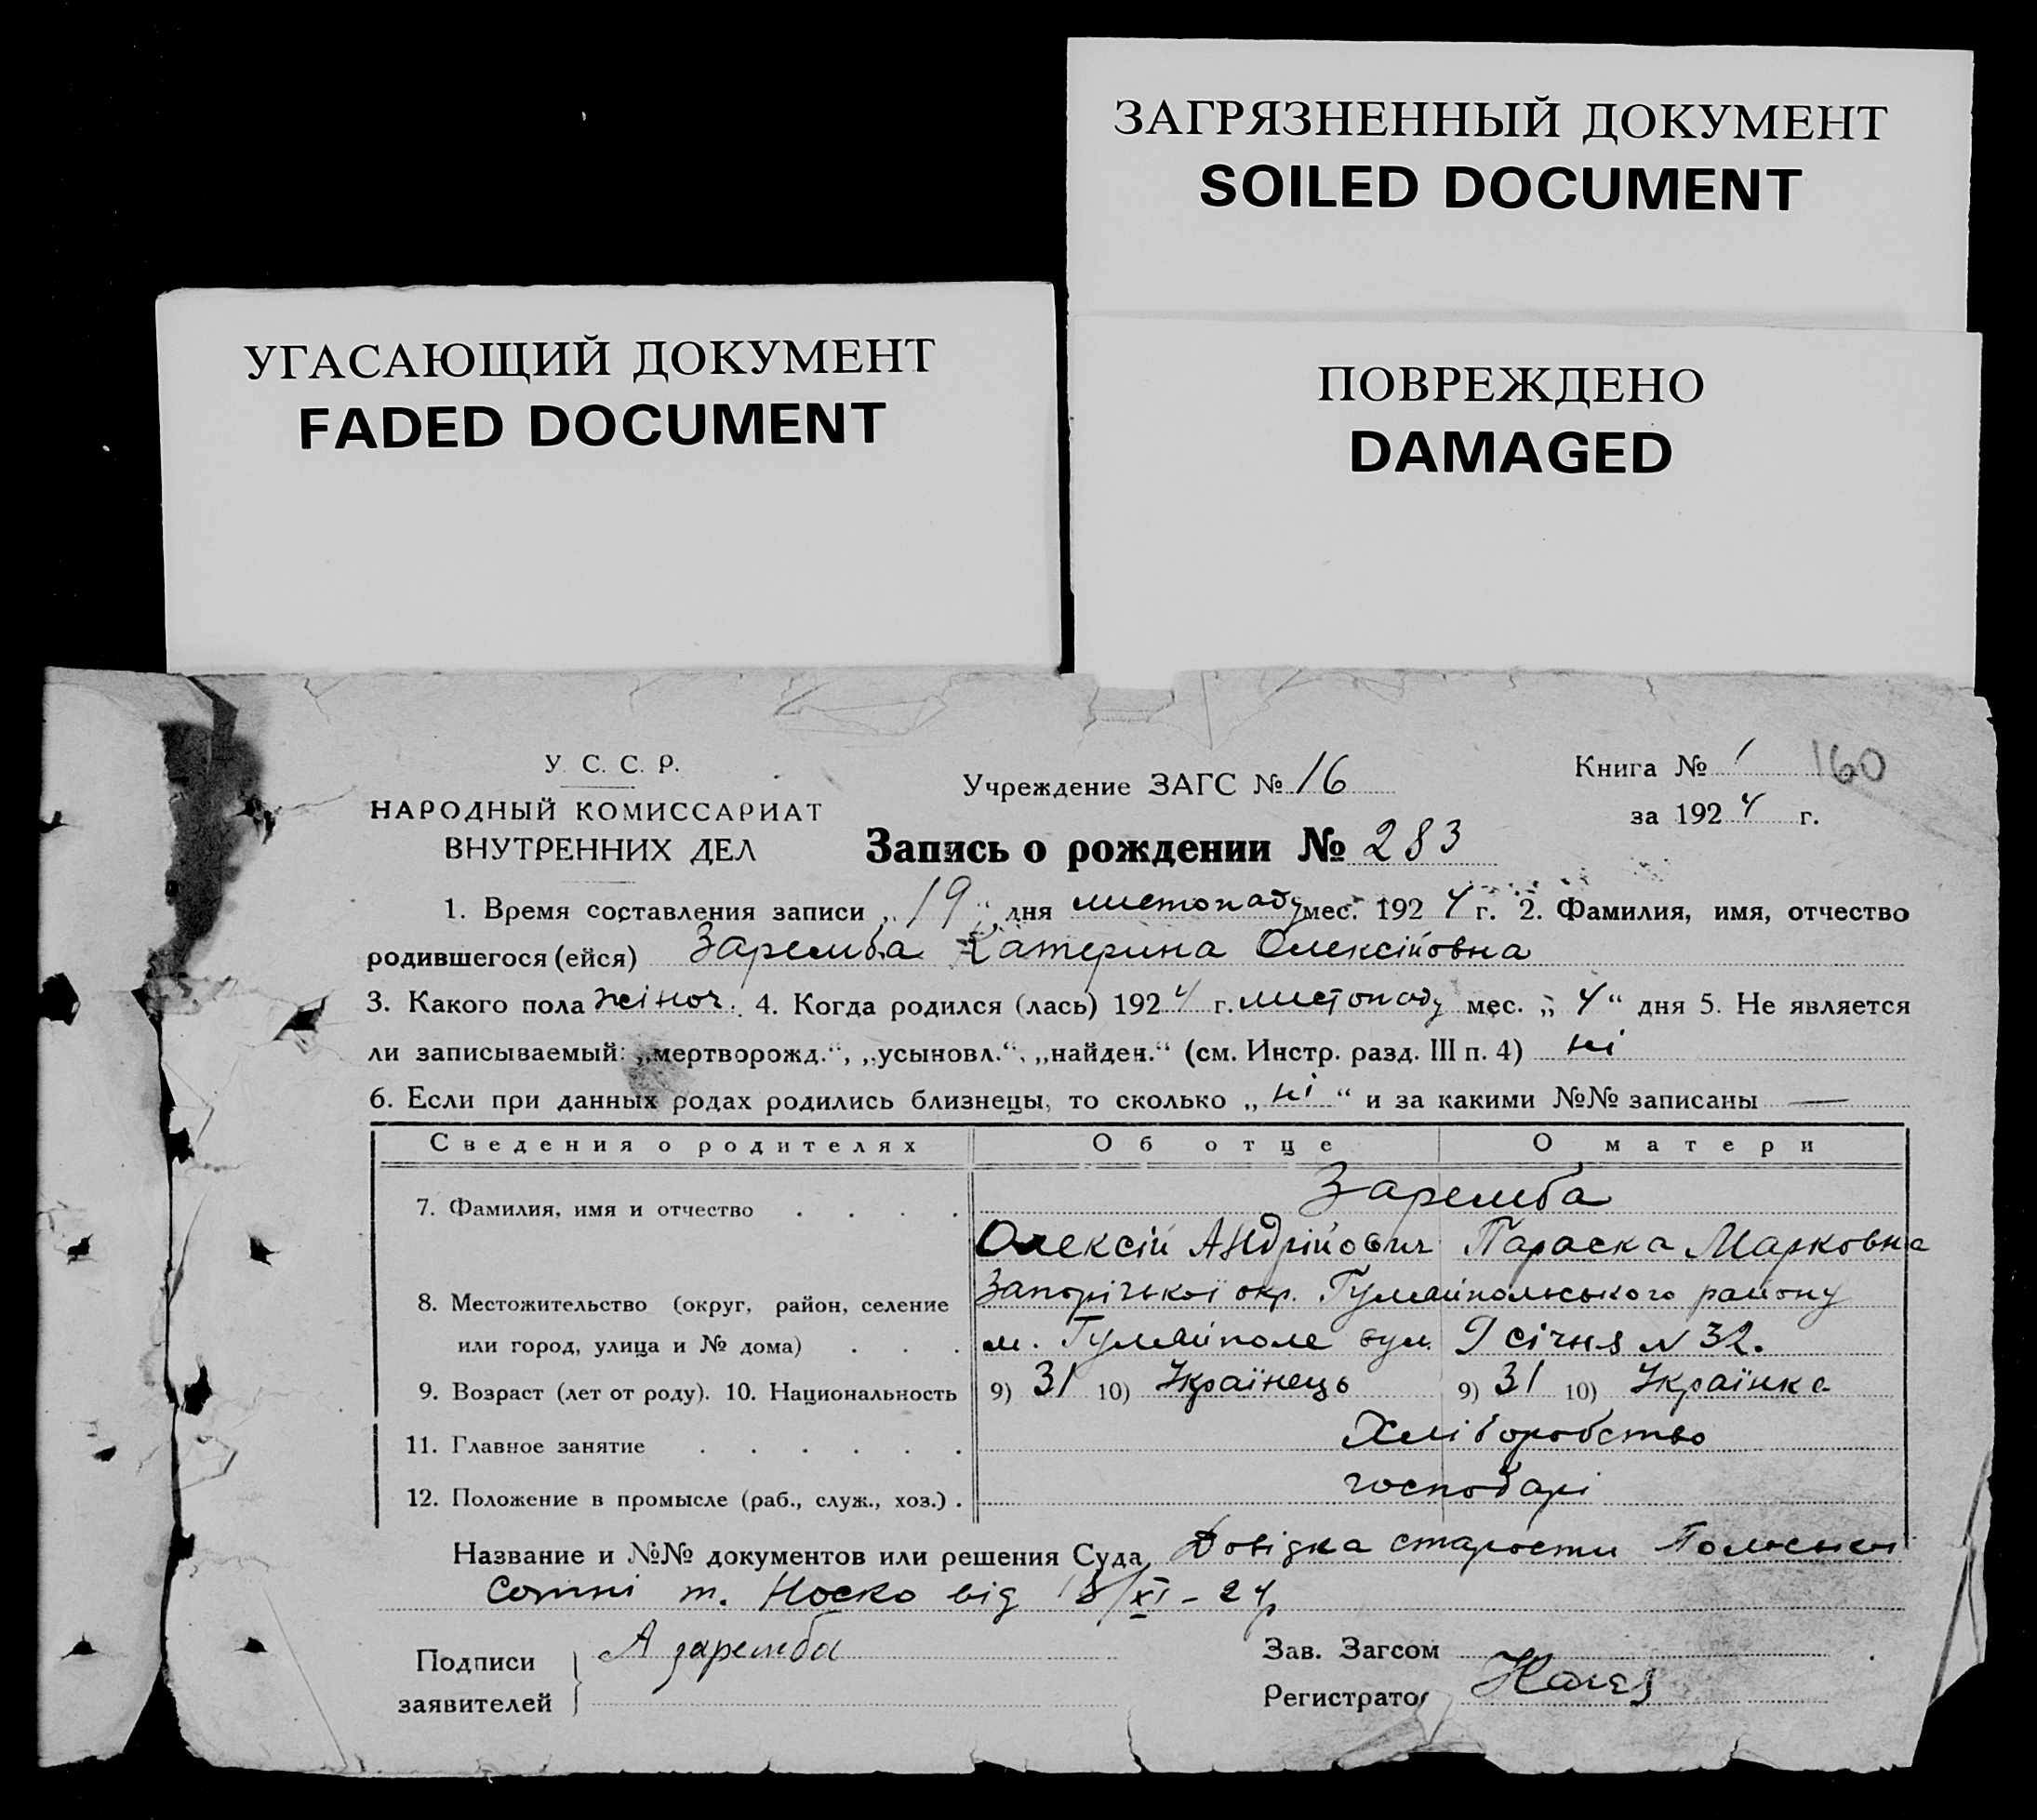 ЗАГРЯЗНЕННЫЙ ДОКУМЕНТ
SOILED DOCUMENT
УГАСАЮЩИЙ ДОКУМЕНТ
FADED DOCUMENT
ПОВРЕЖДЕНО
DAMAGED
У. С. С. Р.
НАРОДНЫЙ КОМИССАРИАТ
ВНУТРЕННИХ ДЕЛ
Учреждение ЗАГС № 16
Книга № 1 160
за 1924 г.
Запись о рождении № 283
1. Время составления записи „19“ дня листопаду мес. 1924 г. 2. Фамилия, имя, отчество
родившегося (ейся) Заремба Катерина Олексійовна
3. Какого пола жіноч. 4. Когда родился (лась) 1924 г. листопаду мес. „4“ дня 5. Не является
ли записываемый: „мертворожд.“, „усыновл.“, „найден.“ (см. Инстр. разд. III п. 4) ні
6. Если при данных родах родились близнецы, то сколько „ні“ и за какими №№ записаны —
Сведения о родителях Об отце О матери
7. Фамилия, имя и отчество . . . . Заремба
Олексій Андрійович Параска Марковна
8. Местожительство (округ, район, селение Запорізької окр. Гуляйпольського району
или город, улица и № дома) . . . м. Гуляйполе вул. 9 січня № 32.
9. Возраст (лет от роду). 10. Национальность 9) 31 10) Українець 9) 31 10) Українка
11. Главное занятие . . . . . . Хліборобство
12. Положение в промысле (раб., служ., хоз.) . господарі
Название и №№ документов или решения Суда Довідка старости Польської
Сотні т. Носко від 18/XI-24р
Подписи
заявителей
А заремба
Зав. Загсом
Регистратор